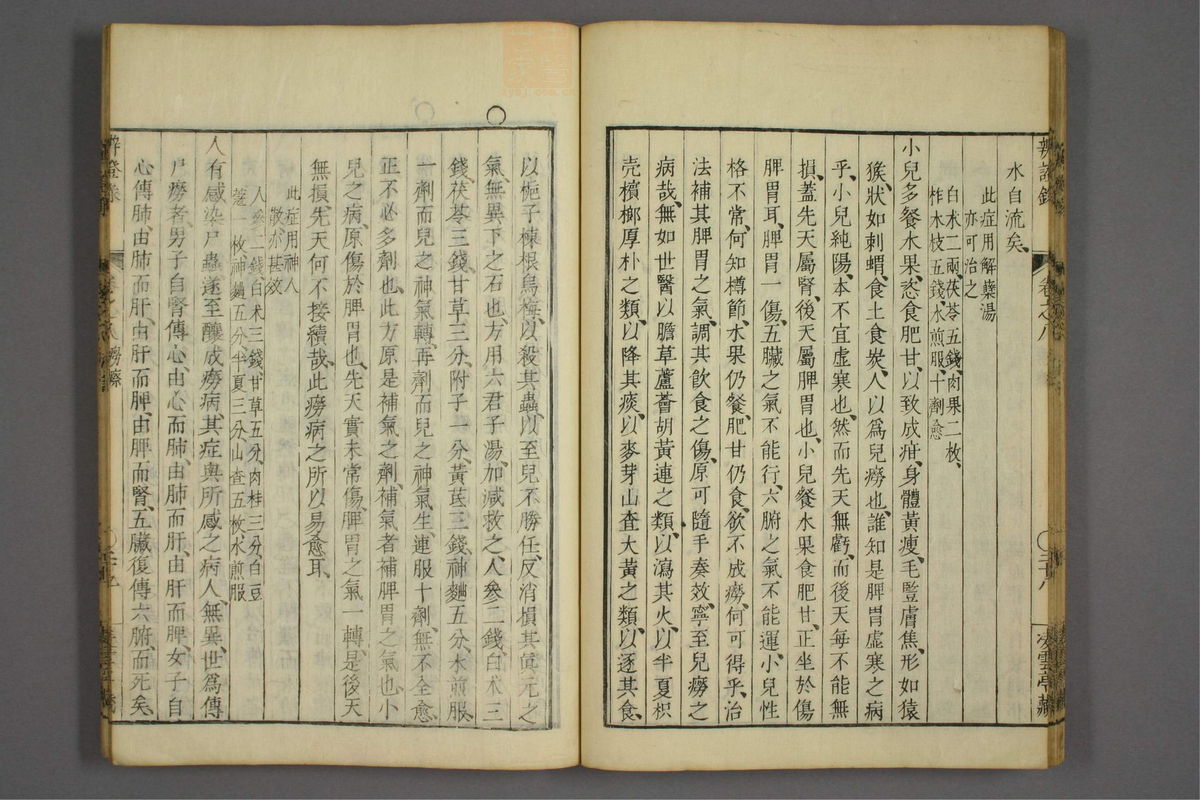 水自流矣、
此症用解糵湯
亦可治之
白水二兩、茯苓五錢、肉果二枚、
柞木枝五錢、水煎服、十劑愈
小兒多餐水果、恣食肥甘、以致成疳、身體黃瘦、毛豎膚焦、形如猿
猴、狀如刺蝟、食土食炭、人以爲兒癆也、誰知是脾胃虛寒之病
乎、小兒純陽、本不宜虛寒也、然而先天無虧、而後天每不能無
損、蓋先天屬腎、後天屬脾胃也、小兒餐水果食肥甘、正坐於傷
脾胃耳、脾胃一傷、五臟之氣不能行、六腑之氣不能運、小兒性
格不常、何知樽節、水果仍餐、肥甘仍食、欲不成癆、何可得乎、治
法補其脾胃之氣、調其飲食之傷、原可隨手奏效、寧至兒癆之
病哉、無如世醫以膽草蘆薈胡黃連之類、以瀉其火、以半夏枳
殼檳榔厚朴之類、以降其痰、以麥芽山查大黃之類、以逐其食、
辨證錄
卷之八
凌雲亭藏
以梔子楝根烏梅、以殺其蟲、以至兒不勝任、反消損其眞元之
氣、無異下之石也、方用六君子湯、加減救之、人參二錢、白朮三
錢、茯苓三錢、甘草三分、附子一分、黃芪三錢、神麯五分、水煎服、
一劑而兒之神氣轉、再劑而兒之神氣生、連服十劑、無不全愈、
正不必多劑也、此方原是補氣之劑、補氣者補脾胃之氣也、小
兒之病、原傷於脾胃也、先天實未常傷、脾胃之氣一轉、是後天
無損、先天何不接續哉、此癆病之所以易愈耳、
此症用神人
散、亦甚效
人參二錢、白朮三錢、甘草五分、肉桂三分、白豆
蔻一枚、神麯五分、半夏三分、山查五枚、水煎服
人有感染尸蟲、遂至釀成癆病、其症與所感之病人無異、世爲傳
尸癆者、男子自腎傳心、由心而肺、由肺而肝、由肝而脾、女子自
心傳肺、由肺而肝、由肝而脾、由脾而腎、五臟復傳六腑、而死矣、
卷之八 癆瘵